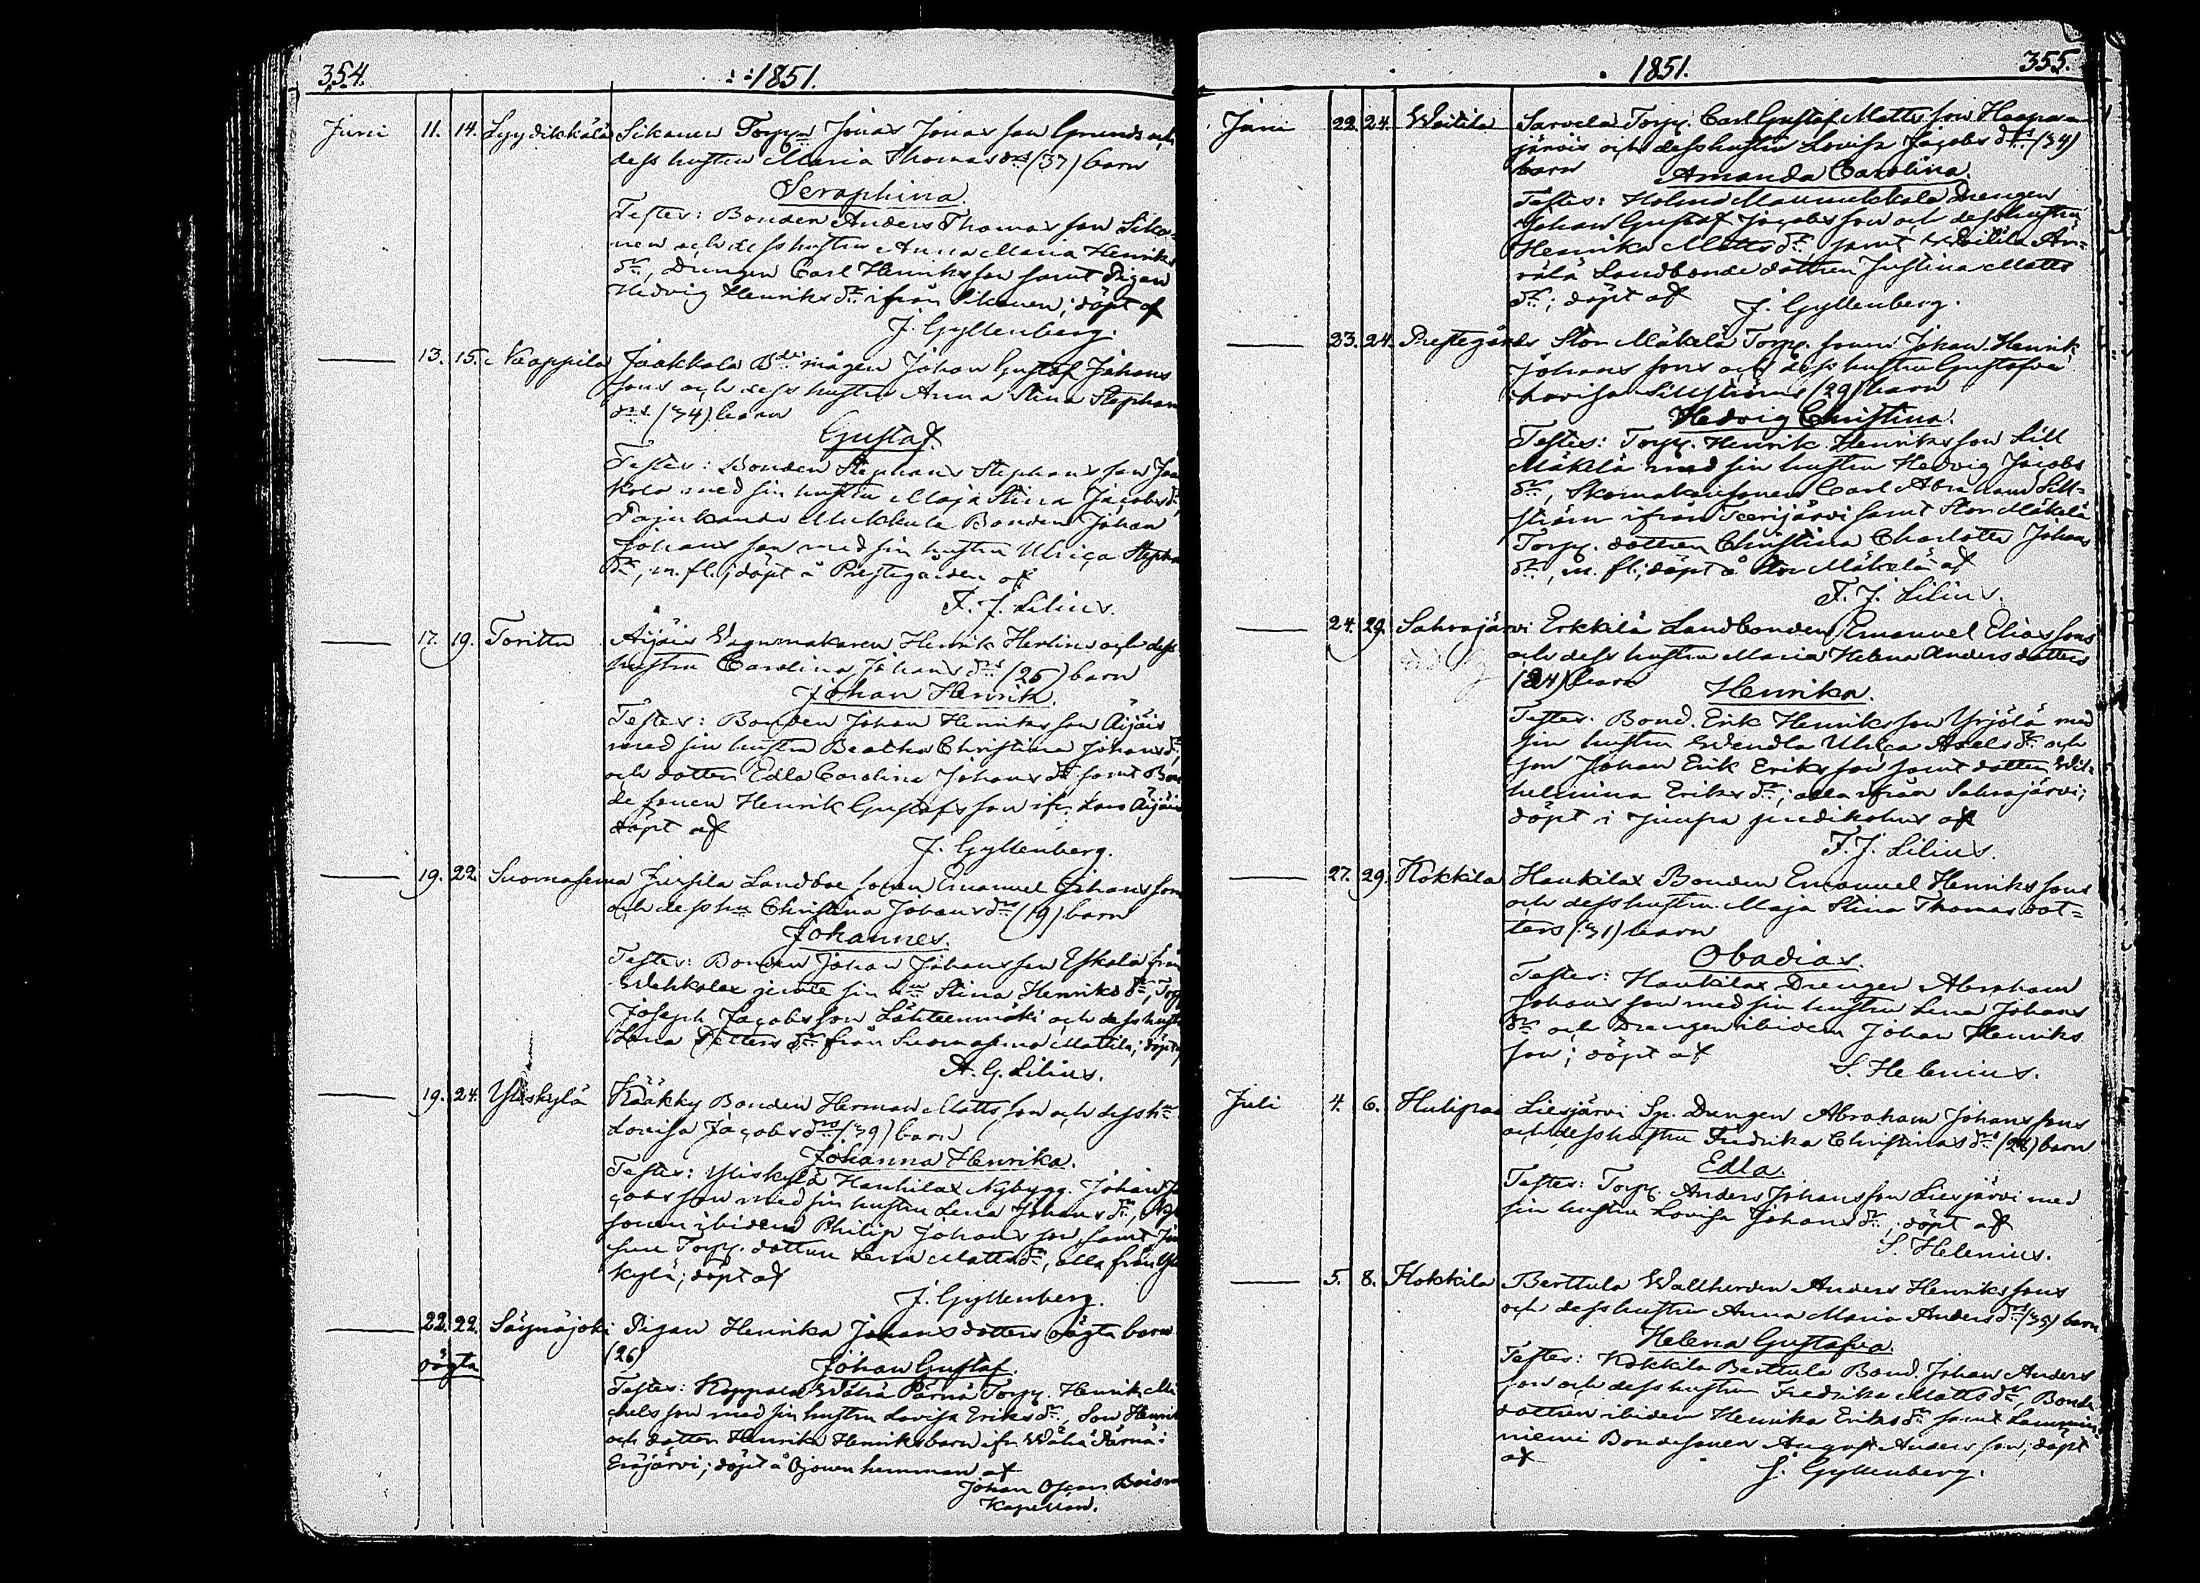 354.
1851.
Juni 11. 14. Lyydikkälä Sikanen Torp. Jonas Jonas son Grunds och
dess hustru Maria Thomas drs (37) barn
Seraphina.
Testes: Bonden Anders Thomas son Sika-
nen och dess hustru Anna Maria Henriks
dr, Drengen Carl Henriks son samt Pigan
Hedvig Henriks dr ifrån Sikanen; döpt af
J. Gyllenberg.
13. 15. Kaappila Jaakkola Bde mågen Johan Gustaf Johans
sons och dess hustru Anna Stina Stephans
drs (34) barn
Gustaf.
Testes: Bonden Stephans Stephans son Jaa
kola med sin hustru Maja Stina Jacobs dr,
Mukkula Bonden Johan
Johans son med sin hustru Ulrica Stephs
dr, m. fl.; döpt å Prestgården af
F. J. Lilius.
17. 19. Toritto Äijäis Wagnmakaren Henrik Herlins och dess
hustru Carolina Johans drs (26) barn
Johan Henrik.
Testes: Bonden Johan Henriks son Äijäis
med sin hustru Beatha Christina Johans dr,
och dotter Edla Carolina Johans dr samt Bon
de sonen Henrik Gustafs son ifr. Äijäis
döpt af
J. Gyllenberg.
19. 22. Suomasema Jussila Landboe sonen Emanuel Johans sons
och dess hu Christina Johans drs (19) barn
Johannes.
Testes: Bonden Johan Johans son Eskola från
jemte sin hu Stina Henriks dr, Torp
Joseph Jacobs son Lähteenmäki och dess hustr
Lena Petters dr från Suomasema Mattila; döpt af
A. G. Lilius.
19. 24. Yliskylä Kääkky Bonden Herman Matts son och dess hu
Lovisa Jacobs drs (39) barn
Johanna Henrika.
Testes: Yliskylä Haukilax Nybygg. Johan Ja
cobs son med sin hustru Lena Johans dr,
sonen ibidem Philip Johans son, samt
Torp. dottren Lena Matts dr, alla från Ylis
kylä; döpt af
J. Gyllenberg.
22. 22. Säynäjoki Pigan Henrika Johans dotters oägta barn
oägta (26)
Johan Gustaf.
Testes: Wähä Pärnä Torp. Henrik Mi
chels son med sin hustru Lovisa Eriks dr, Son Henrik
och dotter Henrika Henriks barn ifr. Wähä Pärnä i
Eräjärvi; döpt å Ojonen hemman af
Johan Oscar
Kapellan.
355.
1851.
Juni 22. 24. Waitila Sarvela Torp. Carl Gustaf Matts son Haapa-
järvis och dess hustru Lovisa Jacobs drs (34)
barn
Amanda Carolina.
Testes: Drengen
Johan Gustaf Jacobs son och dess hustru
Henrika Matts dr, samt Waitila
Landbonde dottren Justina Matts
dr; döpt af
J. Gyllenberg.
23. 24. Prestegårds Stor Mäkelä Torp. sonen Johan Henrik
Johans sons och dess hustru Gustafva
Lovisa Sillströms (29) barn
Hedvig Christina.
Testes: Torp. Henrik Henriks son Lill
Mäkelä med sin hustru Hedvig Jacobs
dr, Skomakaresonen Carl Abraham Sill-
ström ifrån Teerijärvi samt Stor Mäkelä
Torp. dottren Christina Charlotta Johans
dr, m. fl.; döpt å Stor Mäkelä af
F. J. Lilius.
24. 29. Sahrajärvi Erkkilä Landbonden Emanuel Elias sons
och dess hustru Maria Helena Anders dotters
(24) barn
Henrika.
Testes. Bond. Erik Henriks son Yrjölä med
sin hustru Wendla Ulrica Axels dr och
son Johan Erik Eriks son samt dotter Wil-
helmina Eriks dr, alla ifrån Sahrajärvi;
döpt i Juupa predikohus af
F. J. Lilius.
27. 29. Kokkila Haukilax Bonden Emanuel Henriks sons
och dess hustru Maja Stina Thomas dot-
ters (31) barn
Obadias.
Testes: Haukilax Drengen Abraham
Johans son med sin hustru Lena Johans
dr och Drengen ibidem Johan Henriks
son; döpt af
S. Helenius.
Juli 4. 6. Hulipas Liesjärvi Sp. Drengen Abraham Johans sons
och dess hustru Fredrika Christinas drs (28) barn
Edla.
Testes: Torp. Anders Johans son Liesjärvi med
sin hustru Lovisa Johans dr, döpt af
S. Helenius.
5. 8. Kokkila Berttula Wallherden Anders Henriks sons
och dess hustru Anna Maria Anders drs (35) barn
Helena Gustafva.
Testes: Kokkila Berttula Bond. Johan Anders
son och dess hustru Fredrika Matts dr, Bonde
dottren ibidem Henrika Eriks dr samt Lammin-
niemi Bondesonen August Anders son; döpt
af
J. Gyllenberg.